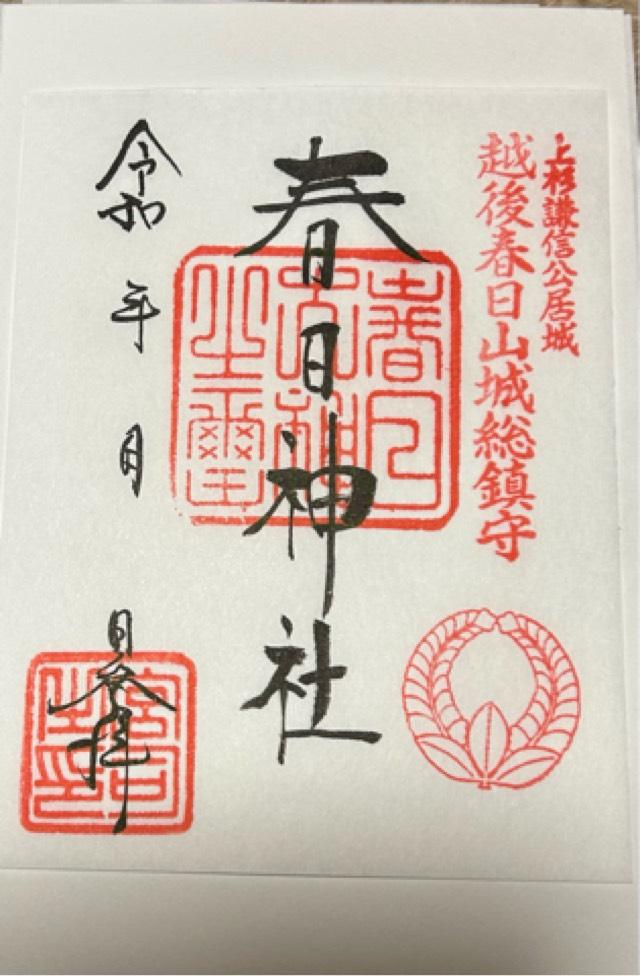 上杉謙信公居城
越後春日山城総鎮守
春日神社
春日
大神
之璽
令和 年 月 日参拝
宮司
之印